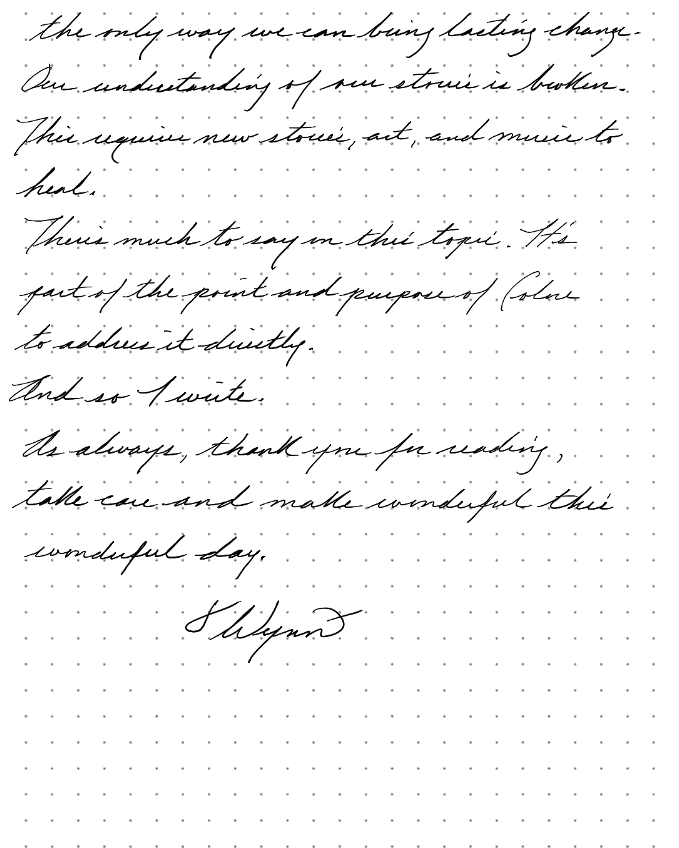 the only way we can bring lasting change.
Our understanding of our stories is broken.
This requires new stories, art, and music to
heal.
There's much to say on this topic. It's
part of the point and purpose of Colore
to address it directly.
And so I write.
As always, thank you for reading,
take care and make wonderful this
wonderful day.
Wynn